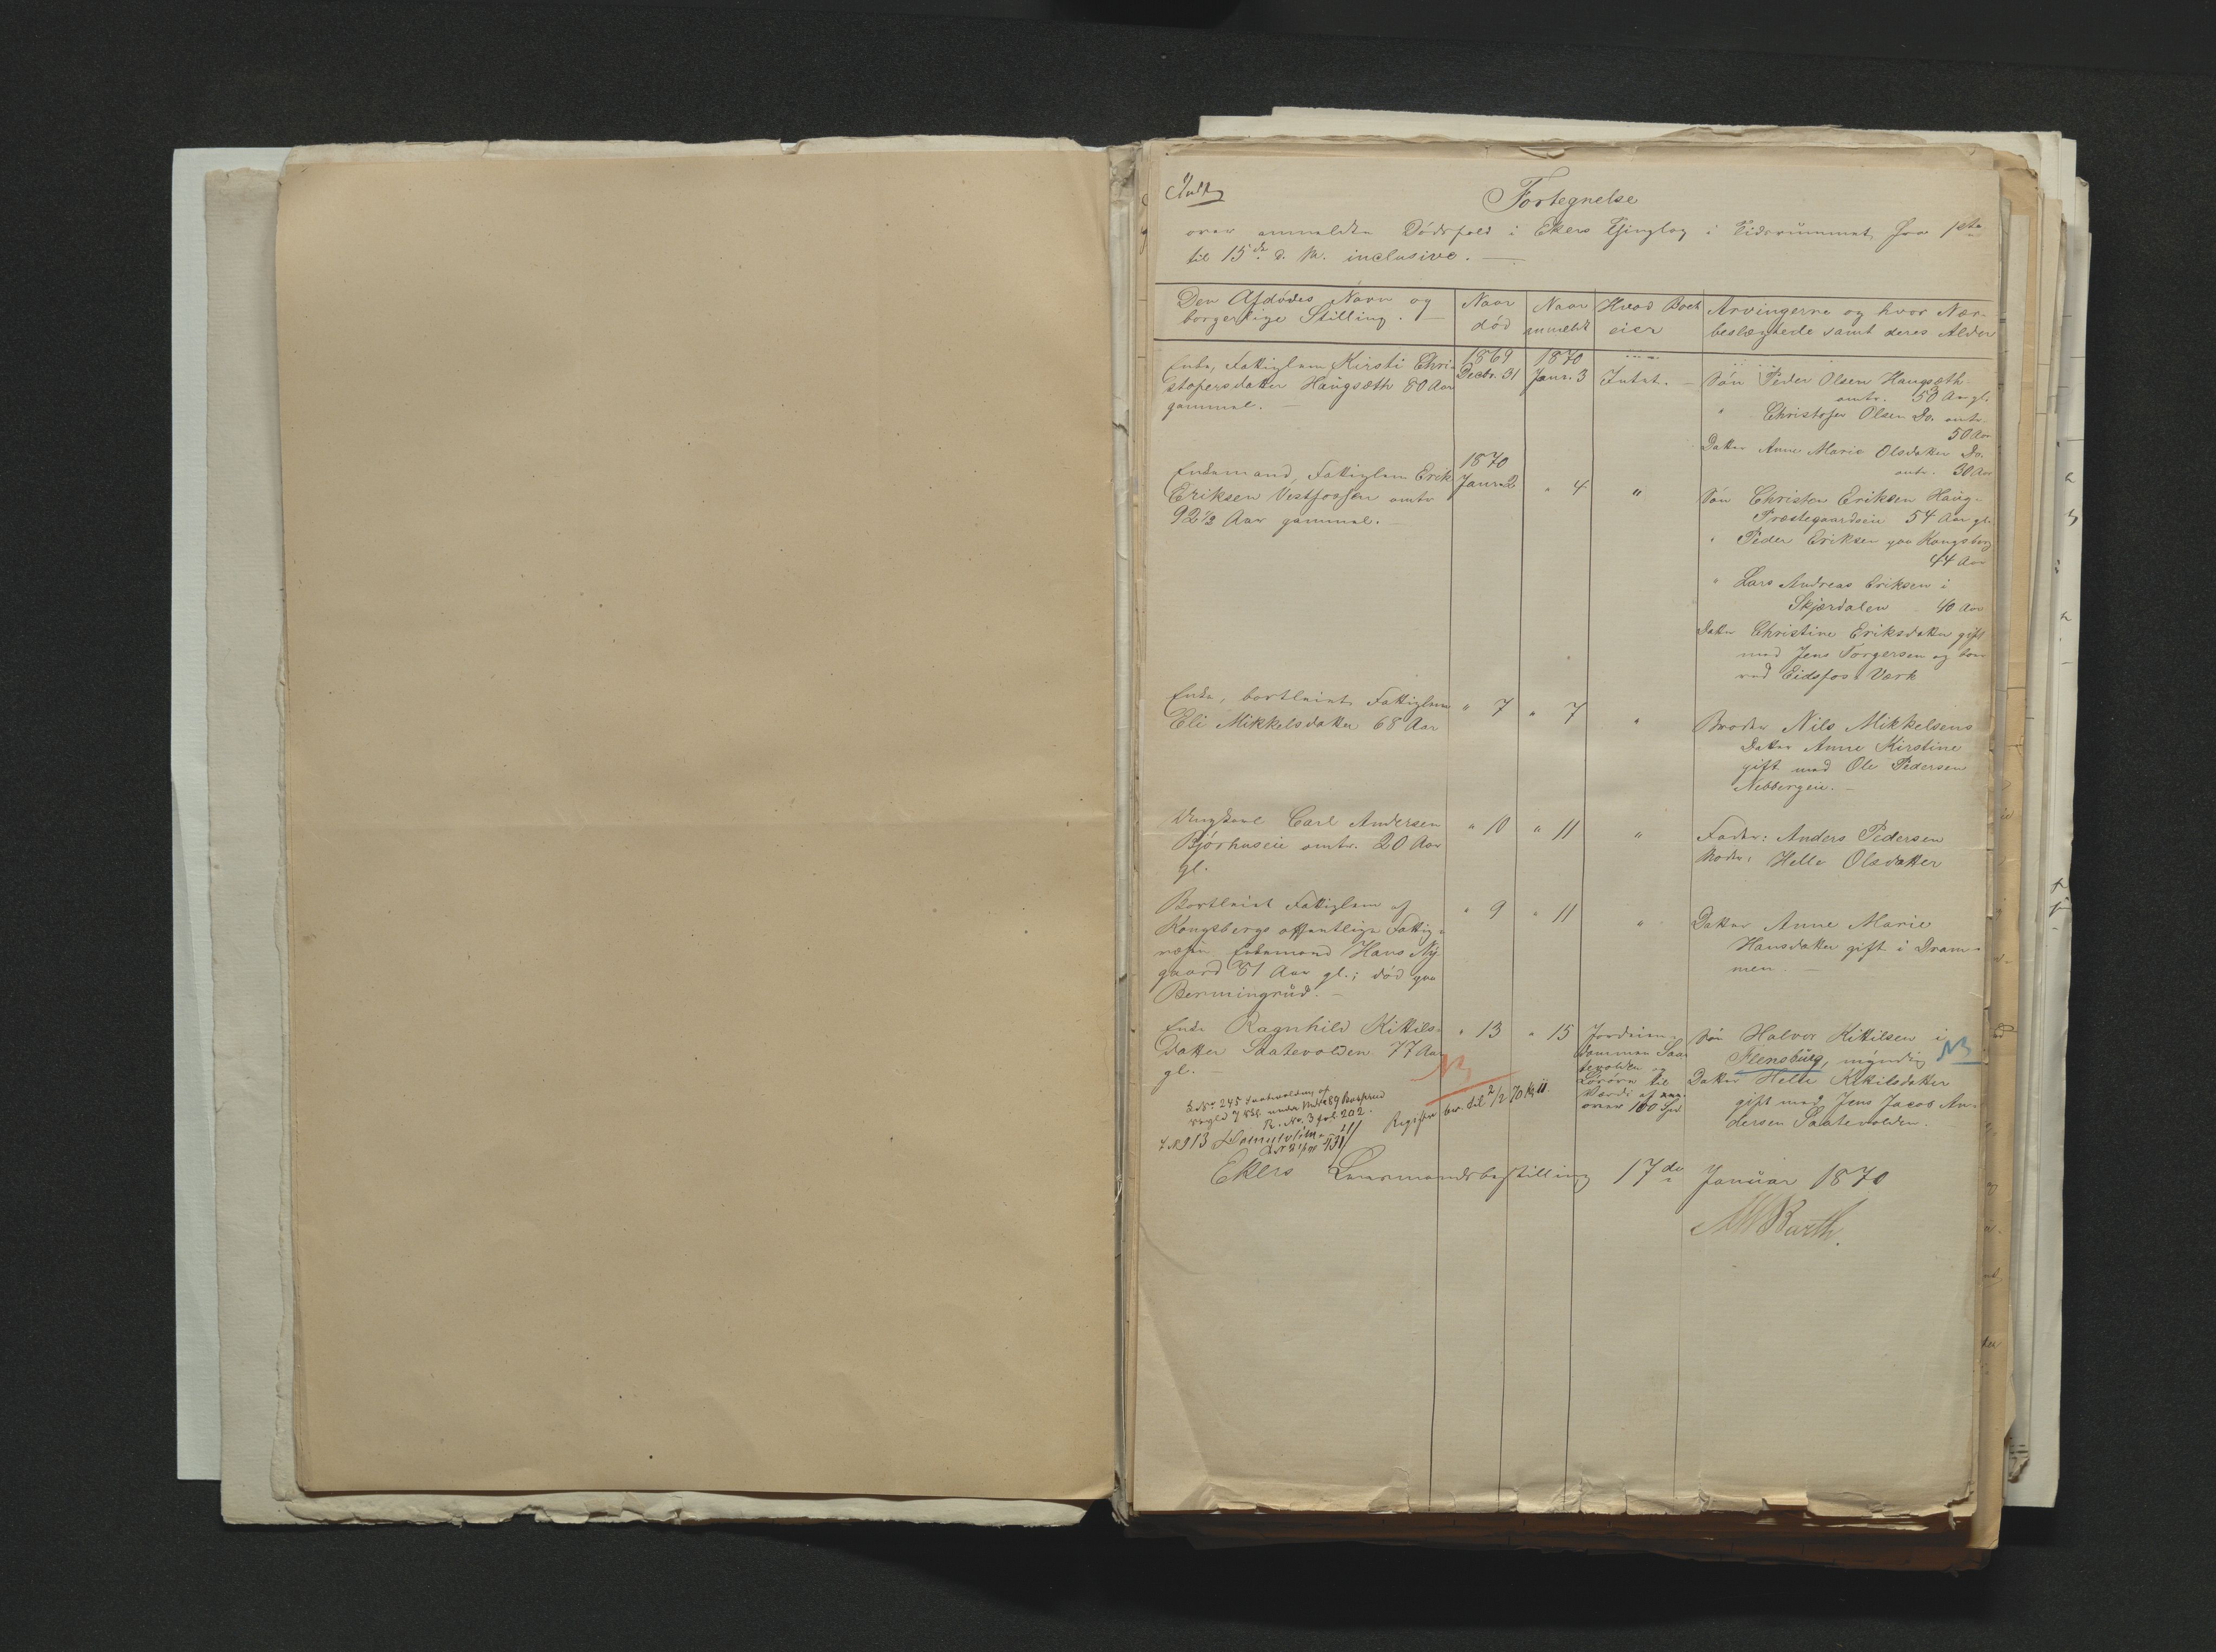 Fortegnelse
over anmeldte Dödsfald i Ekers Thinglag i Tidsrummet fra 1ste
til 15de d. M. inclusive. —
Den Afdödes Navn og
borgerlige Stilling. —
Naar
död
Naar
anmeldt
Hvad Boet
eier
Arvingerne og hvor Nær-
beslægtede samt deres Alder
Enke, Fattiglem Kirsti Chri-
stophersdatter Haugsæth 80 Aar
gammel. —
1869
Decbr. 31
1870
Janr. 3
Intet. —
Sön Peder Olsen Haugsæth
omtr. 50 Aar gl.
" Christofer Olsen Do. omtr.
50 Aar
Datter Anne Marie Olsdatter Do.
omtr. 30 Aar
Enkemand, Fattiglem Erik
Eriksen Vestfossen omtr
92 1/2 Aar gammel. —
1870
Janr. 2
" 4
"
Sön Christen Eriksen Haug-
Præstegaardseie 54 Aar gl.
" Peder Eriksen paa Kongsberg
44 Aar
" Lars Andreas Eriksen i
Skjærdalen 40 Aar
Datter Christine Eriksdatter gift
med Jens Torgersen og boer
ved Eidsfos Værk
Enke, bortleiet Fattiglem
Eli Mikkelsdatter 68 Aar
" 7
" 7
"
Broder Nils Mikkelsens
Datter Anne Kirstine
gift med Ole Pedersen
Nebbergeie. —
Ungkarl Carl Andersen
Björhuseie omtr. 20 Aar
gl.
" 10
" 11
"
Fader: Anders Pedersen
Moder: Helle Olsdatter
Bortleiet Fattiglem af
Kongsbergs offentlige Fattig-
væsen Enkemand Hans Ny-
gaard 81 Aar gl.; död paa
Bermingrud. —
" 9
" 11
"
Datter Anne Marie
Hansdatter gift i Dram-
men. —
Enke Ragnhild Kittils-
datter Saatevolden 77 Aar
gl. —
" 13
" 15
Jordeien-
dommen Saa-
tevolden og
Lösöre til
Værdi af
over 100 Spd
Sön Halvor Kittilsen i
Flensburg, myndig NB
Datter Helle Kittilsdatter
gift med Jens Jacob An-
dersen Saatevolden. —
NB
L.No. 245 Saatevolden af
under
R. No. 3 fol. 202.
til 2/2 70
Ekers Lensmandsbestilling 17de Januar 1870
Barth.